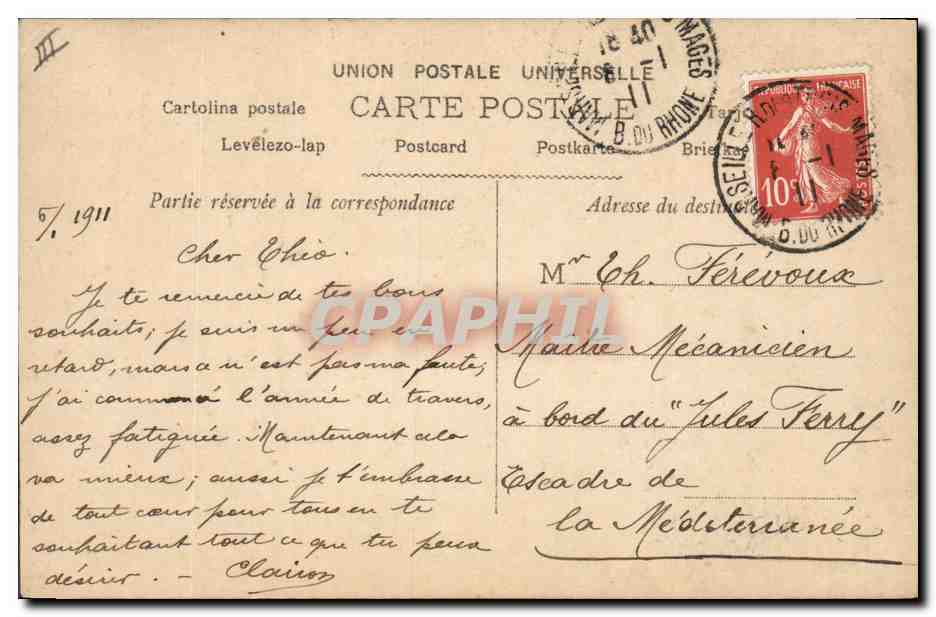 III
UNION POSTALE UNIVERSELLE
Cartolina postale CARTE POSTALE
Levelezo-lap Postcard Postkarte Briefka
5/1 1911
Partie réservée à la correspondance
Cher Théo.
Je te remercie de tes bons
souhaits, je suis un peu en
retard, mais ce n'est pas ma faute,
j'ai commencé l'année de travers,
assez fatiguée. Maintenant cela
va mieux; aussi je t'embrasse
de tout cœur pour tous en te
souhaitant tout ce que tu peux
désirer. -
Adresse du destin
Mr Th. Férévoux
Maitre Mécanicien
à bord du "Jules Ferry"
Escadre de
la Méditerranée
18 40
6 -1
11
MAGES
B. DU RHONE
REPUBLIQUE FRANÇAISE
10c
MAGES
B. DU RHONE
-1
11
CPAPHIL